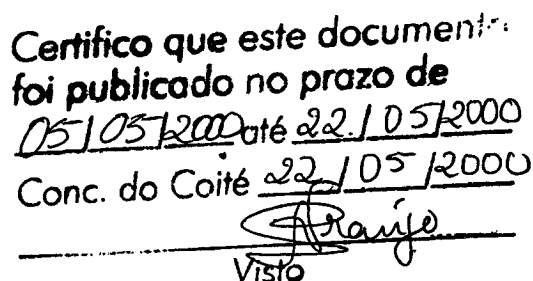 Certifico que este documento
foi publicado no prazo de
05/05/2000 até 22/05/2000
Conc. do Coité 22/05/2000
Araújo
Visto